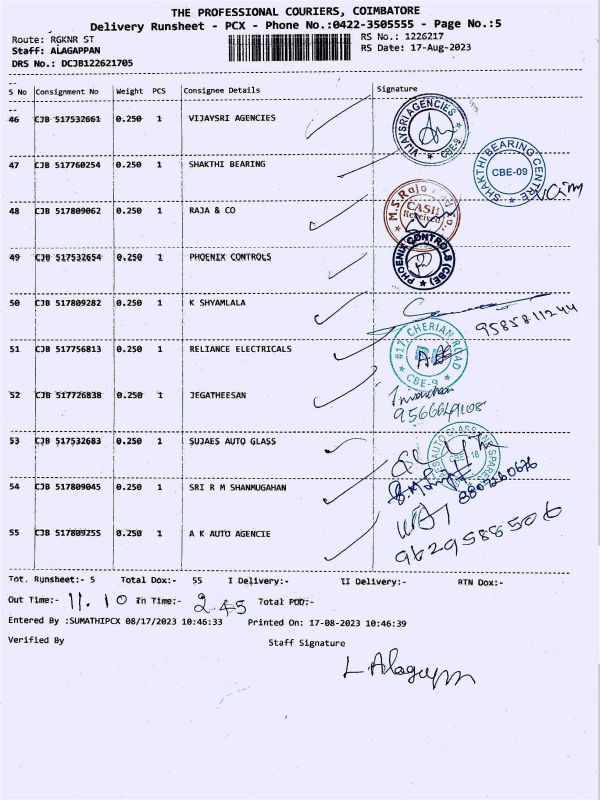 THE PROFESSIONAL COURIERS, COIMBATORE
Delivery Runsheet - PCX - Phone No.:0422-3505555 - Page No.:5
Route: RGKNR ST RS No.: 1226217
Staff: ALAGAPPAN RS Date: 17-Aug-2023
DRS No.: DCJB122621705
S No Consignment No Weight PCS Consignee Details Signature
46 CJB 517532661 0.250 1 VIJAYSRI AGENCIES
VIJAYSRI AGENCIES CBE-9
47 CJB 517760254 0.250 1 SHAKTHI BEARING
SHAKTHI BEARING CENTRE CBE-09
48 CJB 517809062 0.250 1 RAJA & CO
M.S.Raja
CASH
Received
49 CJB 517532654 0.250 1 PHOENIX CONTROLS
PHOENIX CONTROLS (CBE)
50 CJB 517809282 0.250 1 K SHYAMLALA
9585811244
51 CJB 517756813 0.250 1 RELIANCE ELECTRICALS
#17 CHERIAN ROAD CBE-9
52 CJB 517726838 0.250 1 JEGATHEESAN
9566649108
53 CJB 517532683 0.250 1 SUJAES AUTO GLASS
AUTO GLASS
54 CJB 517809045 0.250 1 SRI R M SHANMUGAHAN
55 CJB 517809255 0.250 1 A K AUTO AGENCIE
9629588506
Tot. Runsheet:- 5 Total Dox:- 55 I Delivery:- II Delivery:- RTN Dox:-
Out Time:- 11.10 In Time:- 2.45 Total POD:-
Entered By :SUMATHIPCX 08/17/2023 10:46:33 Printed On: 17-08-2023 10:46:39
Verified By Staff Signature
L Alagappan